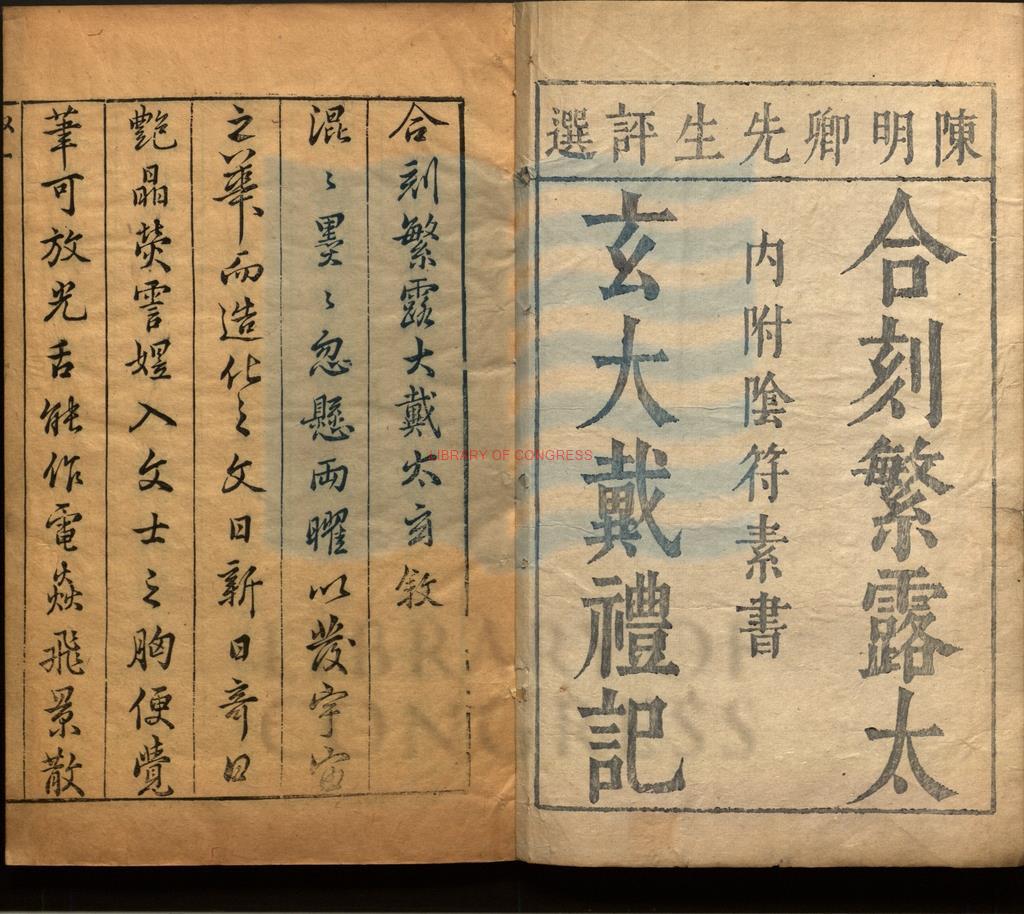 陳明卿先生評選
合刻繁露太
内附陰符素書
玄大戴禮記
合刻繁露大戴太玄敘
混〻墨〻忽懸兩曜以發宇宙
之華而造化之文日新日奇日
艷晶熒雲煜入文士之胸便覺
筆可放光舌能作電焱飛景散
LIBRARY OF CONGRESS